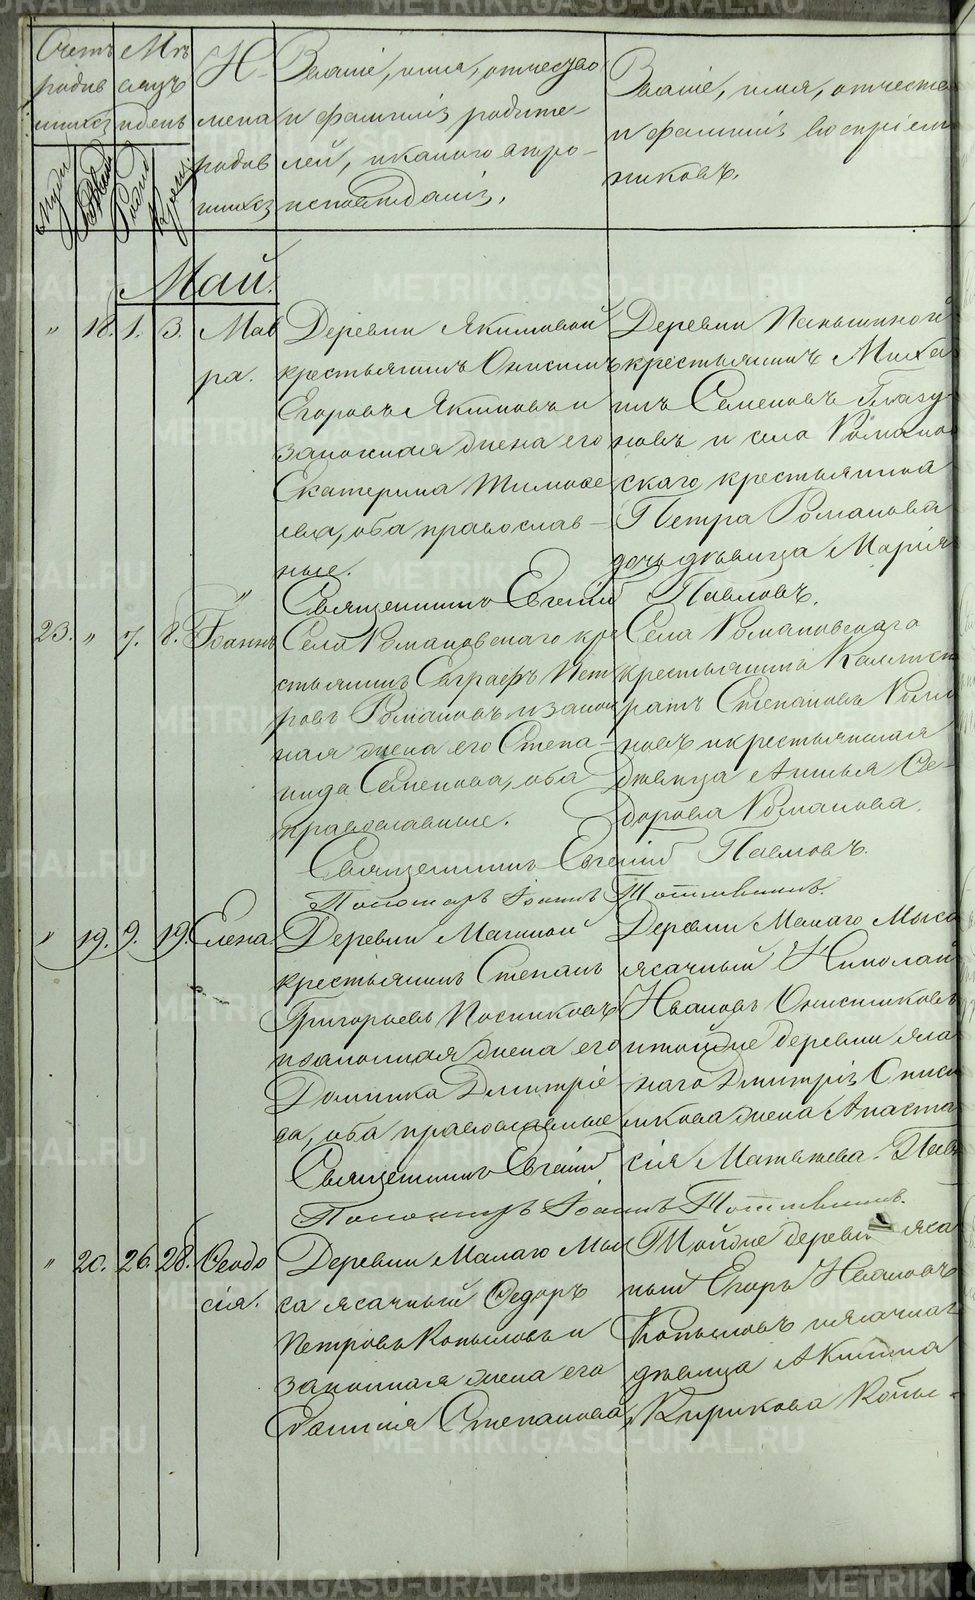 Счетъ родившихся
Мѣсяцъ и день
Имена родившихся
Званіе, имя, отчество и фамилія родителей, и какого вѣроисповѣданія.
Званіе, имя, отчество и фамилія воспріемниковъ.
Май.
" 18. 1. 3. Мавра.
Деревни Якимовой
крестьянинъ Онисимъ
Егоровъ Якимовъ и
законная жена его
Екатерина Тимофе
ева, оба православ-
ные.
Деревни Паньшиной
крестьянинъ Миха
илъ Семеновъ Глазу
новъ и села Романов
скаго крестьянина
Петра Романова
дочь дѣвица Марія
Священникъ Евгеній Павловъ.
23. " 7. 8. Іоаннъ
Села Романовскаго кре
стьянинъ Евграфъ Пет
ровъ Романовъ и закон
ная жена его Степа-
нида Семенова, оба
православные.
Села Романовскаго
крестьянинъ Каллист
ратъ Степановъ
новъ и крестьянская
дѣвица Анисья Ѳе-
дорова Романова.
Священникъ Евгеній Павловъ.
Пономарь Іоаннъ
" 19. 9. 19. Елена
Деревни Машиной
крестьянинъ Степанъ
Григорьевъ Посниковъ
и законная жена его
Домника Дмитріе
ва, оба православные
Деревни Малаго Мыса
ясачный Николай
Ивановъ Онисимковъ
и тойже деревни яса
наго Дмитрія Ониси
мкова жена Анаста
сія Матвѣева.
Священникъ Евгеній Павл
Пономарь Іоаннъ
" 20. 26. 28. Ѳеодо
сія.
Деревни Малаго Мы
са ясачный Ѳедоръ
Петровъ Копыловъ и
законная жена его
Евгенія Степанова,
Тойже деревни яса
ный Егоръ Ивановъ
Копыловъ и ясачная
дѣвица Акилина
Кирикова Копы-